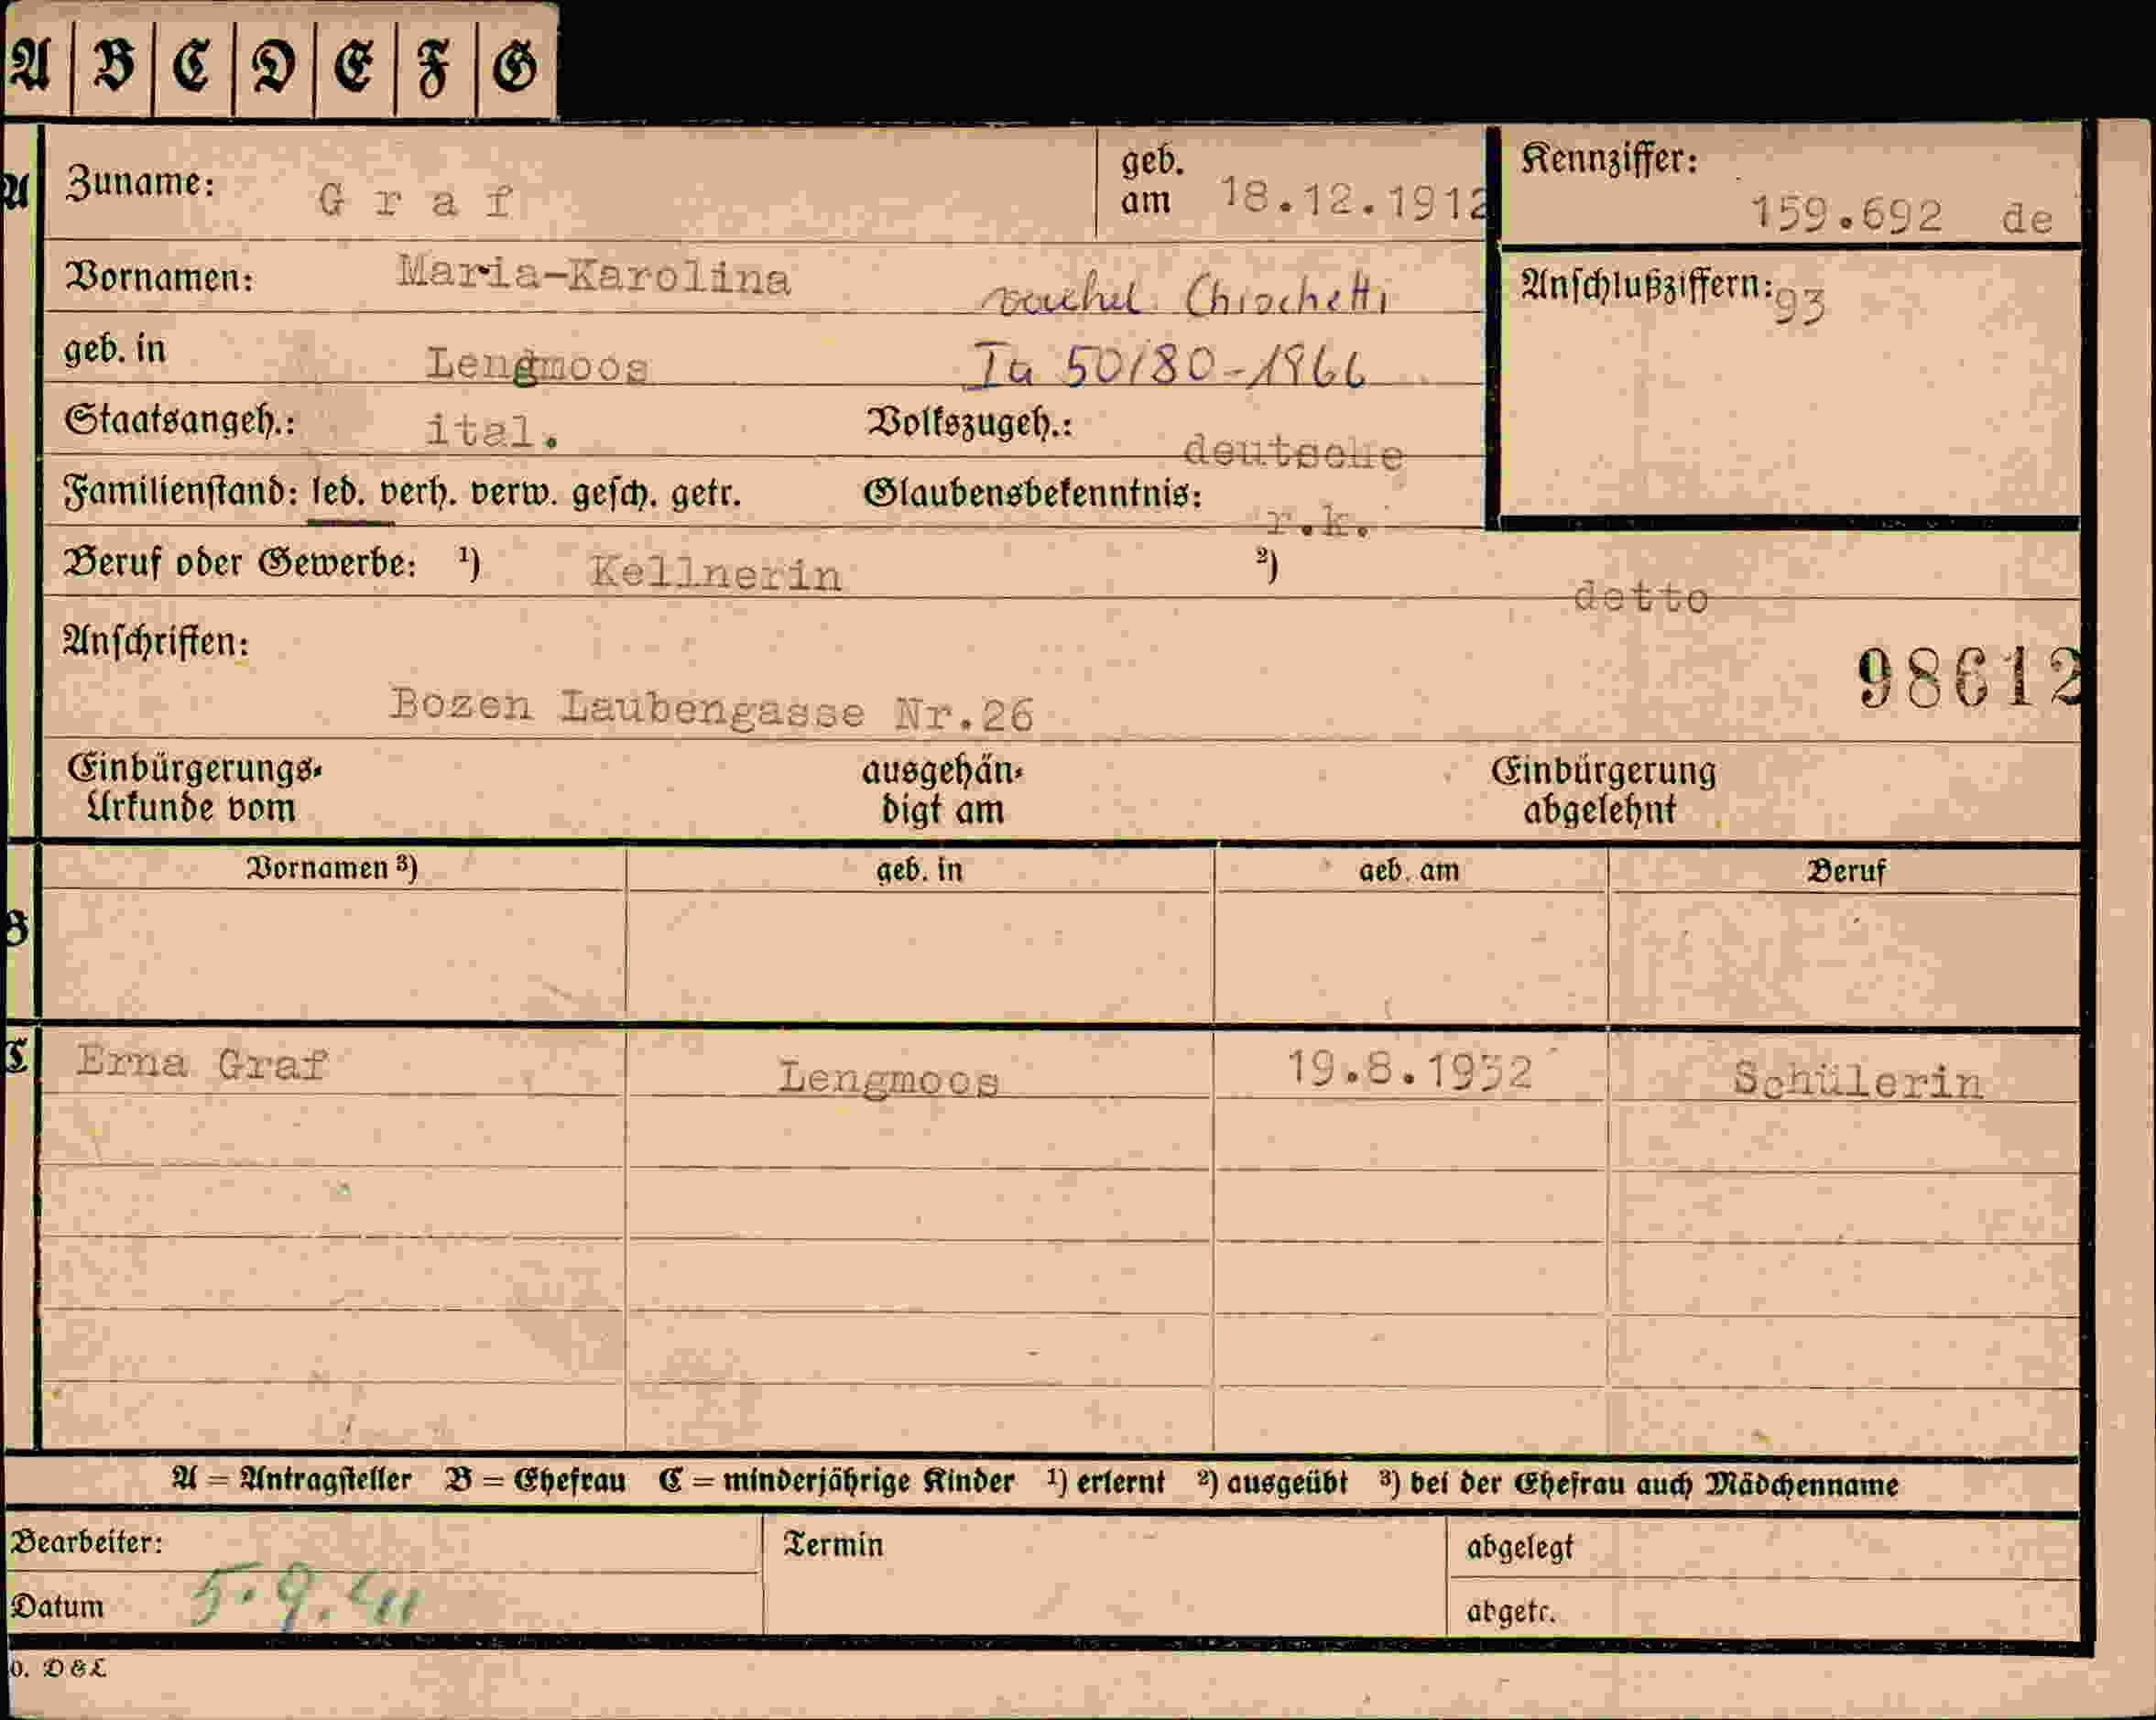 A B C D E F G
A
Zuname: Graf geb. am 18.12.1912
Kennziffer: 159.692 de
Vornamen: Maria-Karolina Chiochetti
Anschlußziffern: 93
geb. in Lengmoos Ia 50/80-1966
Staatsangeh.: ital. Volkszugeh.: deutsche
Familienstand: led. verh. verw. gesch. getr. Glaubensbekenntnis: r.k.
Beruf oder Gewerbe: ¹) Kellnerin ²) detto
Anschriften: 98612
Bozen Laubengasse Nr.26
Einbürgerungs-Urkunde vom ausgehändigt am Einbürgerung abgelehnt
Vornamen ³) geb. in geb. am Beruf
B
C Erna Graf Lengmoos 19.8.1932 Schülerin
A = Antragsteller B = Ehefrau C = minderjährige Kinder ¹) erlernt ²) ausgeübt ³) bei der Ehefrau auch Mädchenname
Bearbeiter: Termin abgelegt
Datum 5.9.41 abgetr.
D & L